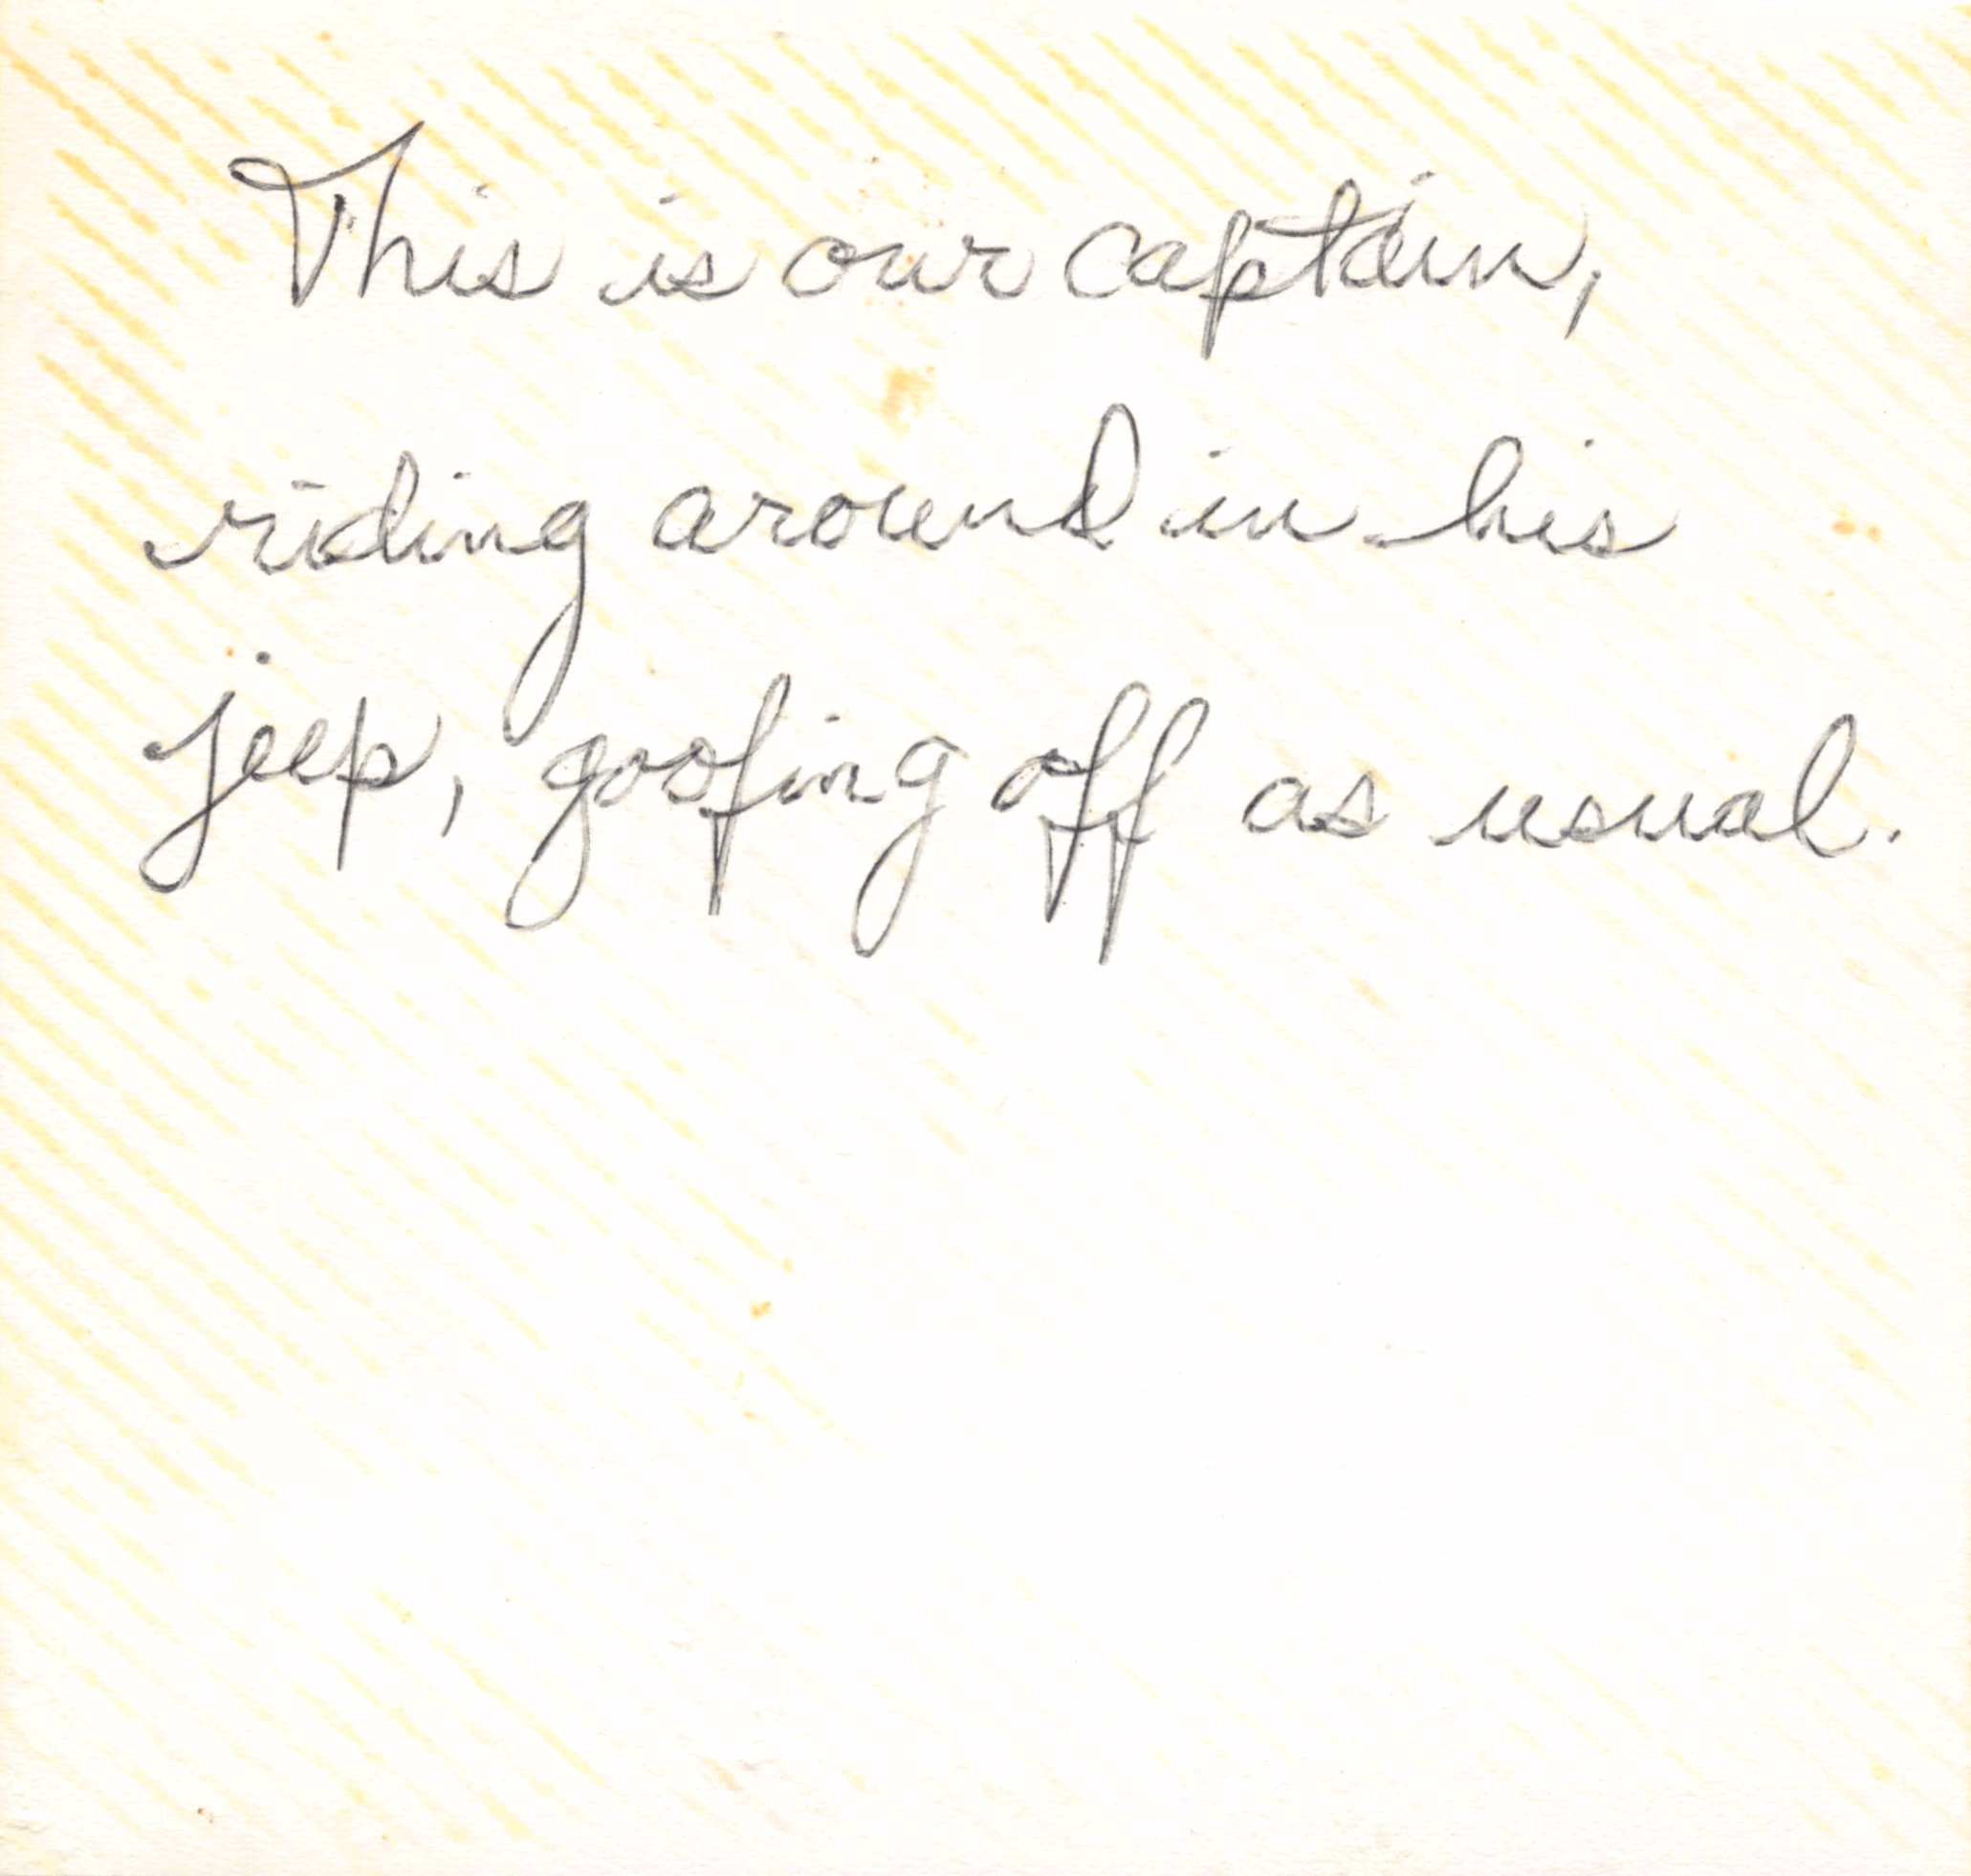 This is our captain,
riding around in his
jeep, goofing off as usual.